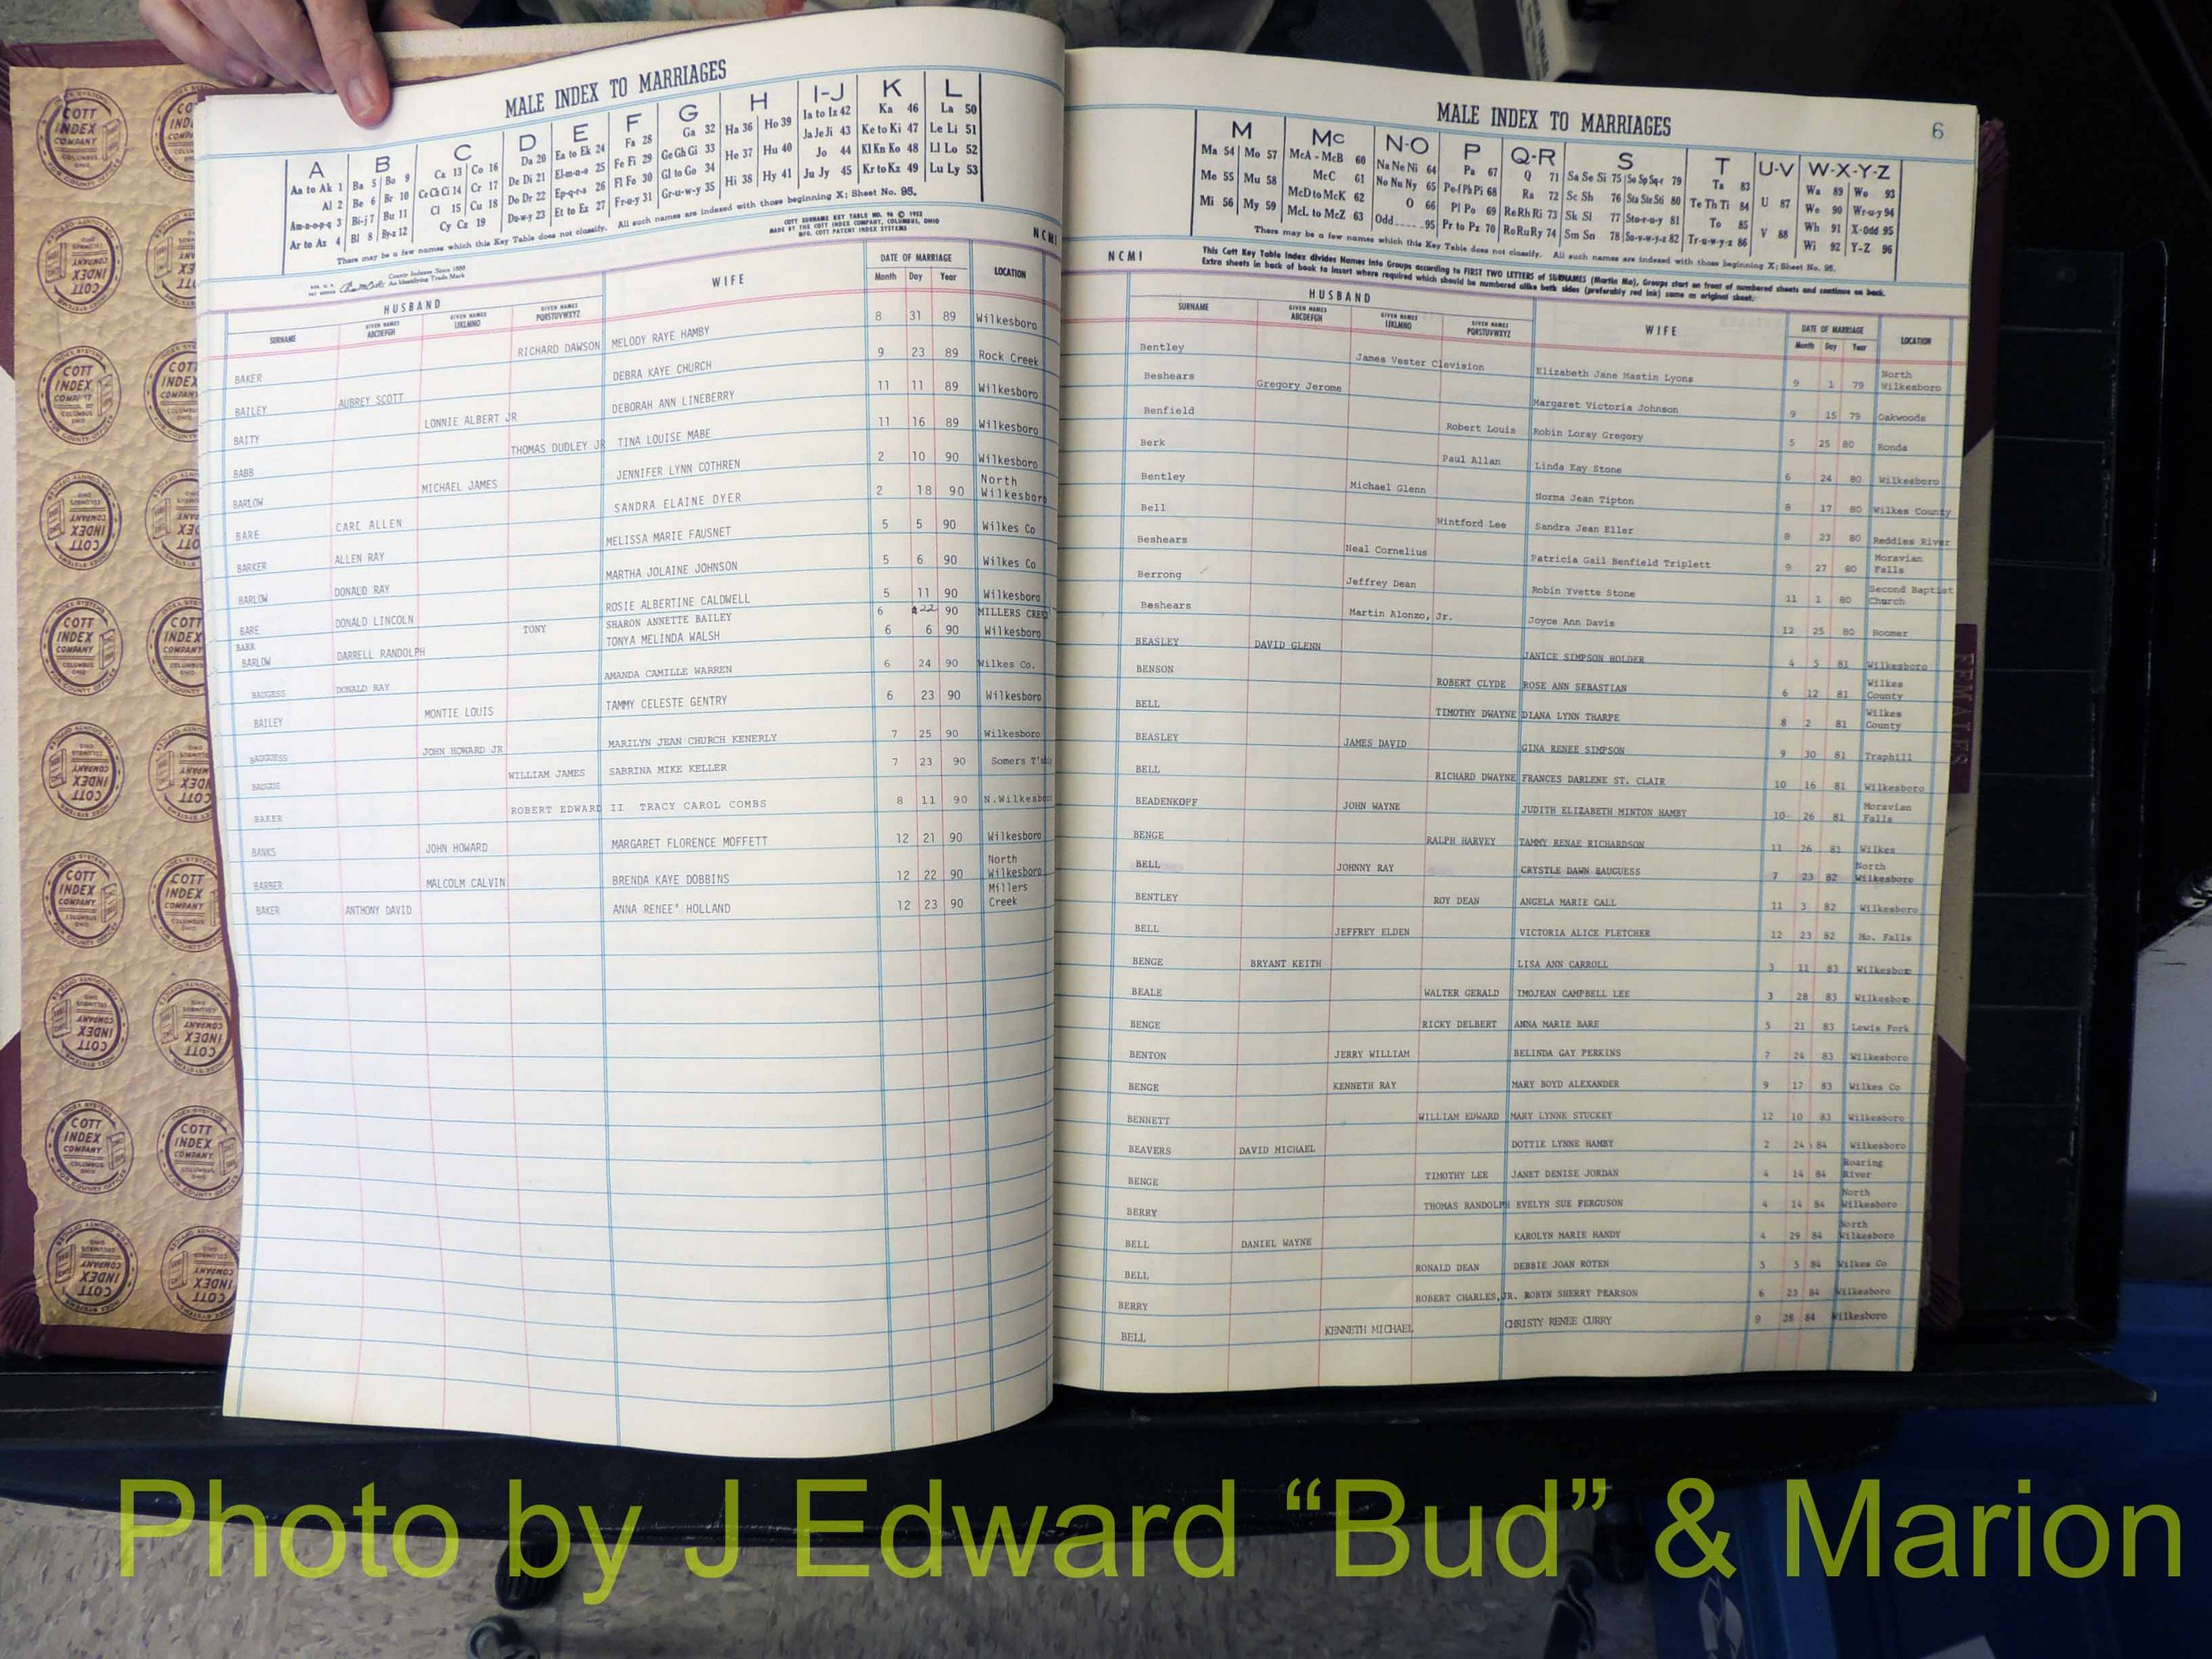 MALE INDEX TO MARRIAGES
A B C D E F G H I-J K L
Aa to Ak 1 Ba 5 Bo 9 Ca 13 Co 16 Da 20 Ea to Ek 24 Fa 28 Ga 32 Ha 36 Ho 39 Ia to Iz 42 Ka 46 La 50
Al 2 Be 6 Br 10 Ce Ch Ci 14 Cr 17 De Di 21 El-m-n-o 25 Fe Fi 29 Ge Gh Gi 33 He 37 Hu 40 Ja Je Ji 43 Ke to Ki 47 Le Li 51
Am-n-o-p-q 3 Bi-j 7 Bu 11 Cl 15 Cu 18 Do Dr 22 Ep-q-r-s 26 Fl Fo 30 Gl to Go 34 Hi 38 Hy 41 Jo 44 Kl Kn Ko 48 Ll Lo 52
Ar to Az 4 Bl 8 By-z 12 Cy Cz 19 Du-w-y 23 Et to Ez 27 Fr-u-y 31 Gr-u-w-y 35 Ju Jy 45 Kr to Kz 49 Lu Ly 53
There may be a few names which this Key Table does not classify. All such names are indexed with those beginning X; Sheet No. 95.
COTT SURNAME KEY TABLE NO. 96 © 1952
MADE BY THE COTT INDEX COMPANY, COLUMBUS, OHIO
MFG. COTT PATENT INDEX SYSTEMS
County Indexes Since 1888
An Identifying Trade Mark
NCMI
HUSBAND WIFE DATE OF MARRIAGE LOCATION
SURNAME GIVEN NAMES ABCDEFGH GIVEN NAMES IJKLMNO GIVEN NAMES PQRSTUVWXYZ Month Day Year
BAKER RICHARD DAWSON MELODY RAYE HAMBY 8 31 89 Wilkesboro
BAILEY AUBREY SCOTT DEBRA KAYE CHURCH 9 23 89 Rock Creek
BAITY LONNIE ALBERT JR DEBORAH ANN LINEBERRY 11 11 89 Wilkesboro
BABB THOMAS DUDLEY JR TINA LOUISE MABE 11 16 89 Wilkesboro
BARLOW MICHAEL JAMES JENNIFER LYNN COTHREN 2 10 90 Wilkesboro
BARE CARL ALLEN SANDRA ELAINE DYER 2 18 90 North Wilkesboro
BARKER ALLEN RAY MELISSA MARIE FAUSNET 5 5 90 Wilkes Co
BARLOW DONALD RAY MARTHA JOLAINE JOHNSON 5 6 90 Wilkes Co
BARE DONALD LINCOLN ROSIE ALBERTINE CALDWELL 5 11 90 Wilkesboro
BARR TONY SHARON ANNETTE BAILEY 6 22 90 MILLERS CREEK
BARLOW DARRELL RANDOLPH TONYA MELINDA WALSH 6 6 90 Wilkesboro
BAUGESS DONALD RAY AMANDA CAMILLE WARREN 6 24 90 Wilkes Co.
BAILEY MONTIE LOUIS TAMMY CELESTE GENTRY 6 23 90 Wilkesboro
BAUGUESS JOHN HOWARD JR MARILYN JEAN CHURCH KENERLY 7 25 90 Wilkesboro
BAUGUS WILLIAM JAMES SABRINA MIKE KELLER 7 23 90 Somers
BAKER ROBERT EDWARD II TRACY CAROL COMBS 8 11 90 N.Wilkesboro
BANKS JOHN HOWARD MARGARET FLORENCE MOFFETT 12 21 90 Wilkesboro
BARBER MALCOLM CALVIN BRENDA KAYE DOBBINS 12 22 90 North Wilkesboro
BAKER ANTHONY DAVID ANNA RENEE' HOLLAND 12 23 90 Millers Creek
MALE INDEX TO MARRIAGES
6
M Mc N-O P Q-R S T U-V W-X-Y-Z
Ma 54 Mo 57 McA - McB 60 Na Ne Ni 64 Pa 67 Q 71 Sa Se Si 75 So Sp Sq-r 79 Ta 83 U 87 Wa 89 Wo 93
Me 55 Mu 58 McC 61 No Nu Ny 65 Pe-f Ph Pi 68 Ra 72 Sc Sh 76 Sta Ste Sti 80 Te Th Ti 84 V 88 We 90 Wr-u-y 94
Mi 56 My 59 McD to McK 62 O 66 Pl Po 69 Re Rh Ri 73 Sk Sl 77 Sto-r-u-y 81 To 85 Wh 91 X-Odd 95
McL to McZ 63 Odd 95 Pr to Pz 70 Ro Ru Ry 74 Sm Sn 78 Su-v-w-y-z 82 Tr-u-w-y-z 86 Wi 92 Y-Z 96
There may be a few names which this Key Table does not classify. All such names are indexed with those beginning X; Sheet No. 95.
NCMI
This Cott Key Table Index divides Names into Groups according to FIRST TWO LETTERS of SURNAMES (Martin Ma), Groups start on front of numbered sheets and continue on back.
Extra sheets in back of book to insert where required which should be numbered alike both sides (preferably red ink) same as original sheet.
HUSBAND WIFE DATE OF MARRIAGE LOCATION
SURNAME GIVEN NAMES ABCDEFGH GIVEN NAMES IJKLMNO GIVEN NAMES PQRSTUVWXYZ Month Day Year
Bentley James Vester Clevision Elizabeth Jane Mastin Lyons 9 1 79 North Wilkesboro
Beshears Gregory Jerome Margaret Victoria Johnson 9 15 79 Oakwoods
Benfield Robert Louis Robin Loray Gregory 5 25 80 Ronda
Berk Paul Allan Linda Kay Stone 6 24 80 Wilkesboro
Bentley Michael Glenn Norma Jean Tipton 8 17 80 Wilkes County
Bell Wintford Lee Sandra Jean Eller 8 23 80 Reddies River
Beshears Neal Cornelius Patricia Gail Benfield Triplett 9 27 80 Moravian Falls
Berrong Jeffrey Dean Robin Yvette Stone 11 1 80 Second Baptist Church
Beshears Martin Alonzo, Jr. Joyce Ann Davis 12 25 80 Boomer
BEASLEY DAVID GLENN JANICE SIMPSON HOLDER 4 5 81 Wilkesboro
BENSON ROBERT CLYDE ROSE ANN SEBASTIAN 6 12 81 Wilkes County
BELL TIMOTHY DWAYNE DIANA LYNN THARPE 8 2 81 Wilkes County
BEASLEY JAMES DAVID GINA RENEE SIMPSON 9 30 81 Traphill
BELL RICHARD DWAYNE FRANCES DARLENE ST. CLAIR 10 16 81 Wilkesboro
BEADENKOPF JOHN WAYNE JUDITH ELIZABETH MINTON HAMBY 10 26 81 Moravian Falls
BENGE RALPH HARVEY TAMMY RENAE RICHARDSON 11 26 81 Wilkes
BELL JOHNNY RAY CRYSTLE DAWN BAUGUESS 7 23 82 North Wilkesboro
BENTLEY ROY DEAN ANGELA MARIE CALL 11 3 82 Wilkesboro
BELL JEFFREY ELDEN VICTORIA ALICE FLETCHER 12 23 82 Mo. Falls
BENGE BRYANT KEITH LISA ANN CARROLL 3 11 83 Wilkesboro
BEALE WALTER GERALD IMOJEAN CAMPBELL LEE 3 28 83 Wilkesboro
BENGE RICKY DELBERT ANNA MARIE BARE 5 21 83 Lewis Fork
BENTON JERRY WILLIAM BELINDA GAY PERKINS 7 24 83 Wilkesboro
BENGE KENNETH RAY MARY BOYD ALEXANDER 9 17 83 Wilkes Co
BENNETT WILLIAM EDWARD MARY LYNNE STUCKEY 12 10 83 Wilkesboro
BEAVERS DAVID MICHAEL DOTTIE LYNNE HAMBY 2 24 84 Wilkesboro
BENGE TIMOTHY LEE JANET DENISE JORDAN 4 14 84 Roaring River
BERRY THOMAS RANDOLPH EVELYN SUE FERGUSON 4 14 84 North Wilkesboro
BELL DANIEL WAYNE KAROLYN MARIE HANDY 4 29 84 North Wilkesboro
BELL RONALD DEAN DEBBIE JOAN ROTEN 5 5 84 Wilkes Co
BERRY ROBERT CHARLES, JR. ROBYN SHERRY PEARSON 6 23 84 Wilkesboro
BELL KENNETH MICHAEL CHRISTY RENEE CURRY 9 28 84 Wilkesboro
COTT INDEX COMPANY
Photo by J Edward “Bud” & Marion